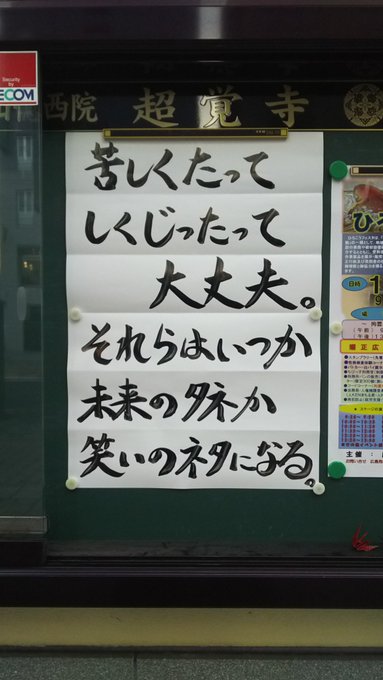 Security
by
ECOM
西院 超覚寺
苦しくたって
しくじったって
大丈夫。
それらはいつか
未来のタネか
笑いのネタになる。
ひ
日時
主催：